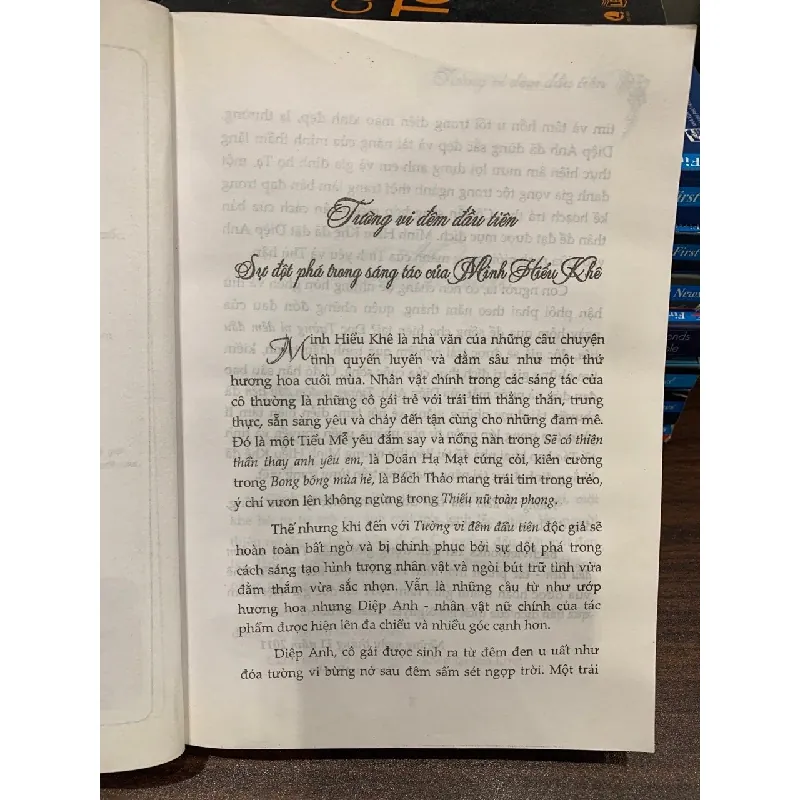 Tường vi đêm đầu tiên
Sự đột phá trong sáng tác của Minh Hiểu Khê
Minh Hiểu Khê là nhà văn của những câu chuyện
tình quyến luyến và đằm sâu như một thứ
hương hoa cuối mùa. Nhân vật chính trong các sáng tác của
cô thường là những cô gái trẻ với trái tim thẳng thắn, trung
thực, sẵn sàng yêu và cháy đến tận cùng cho những đam mê.
Đó là một Tiểu Mễ yêu đắm say và nồng nàn trong Sẽ có thiên
thần thay anh yêu em, là Doãn Hạ Mạt cứng cỏi, kiên cường
trong Bong bóng mùa hè, là Bách Thảo mang trái tim trong trẻo,
ý chí vươn lên không ngừng trong Thiếu nữ toàn phong.
Thế nhưng khi đến với Tường vi đêm đầu tiên độc giả sẽ
hoàn toàn bất ngờ và bị chinh phục bởi sự đột phá trong
cách sáng tạo hình tượng nhân vật và ngòi bút trữ tình vừa
đằm thắm vừa sắc nhọn. Vẫn là những câu từ như ướp
hương hoa nhưng Diệp Anh - nhân vật nữ chính của tác
phẩm được hiện lên đa chiều và nhiều góc cạnh hơn.
Diệp Anh, cô gái được sinh ra từ đêm đen u uất như
đóa tường vi bừng nở sau đêm sấm sét ngợp trời. Một trái
First
First
News
First